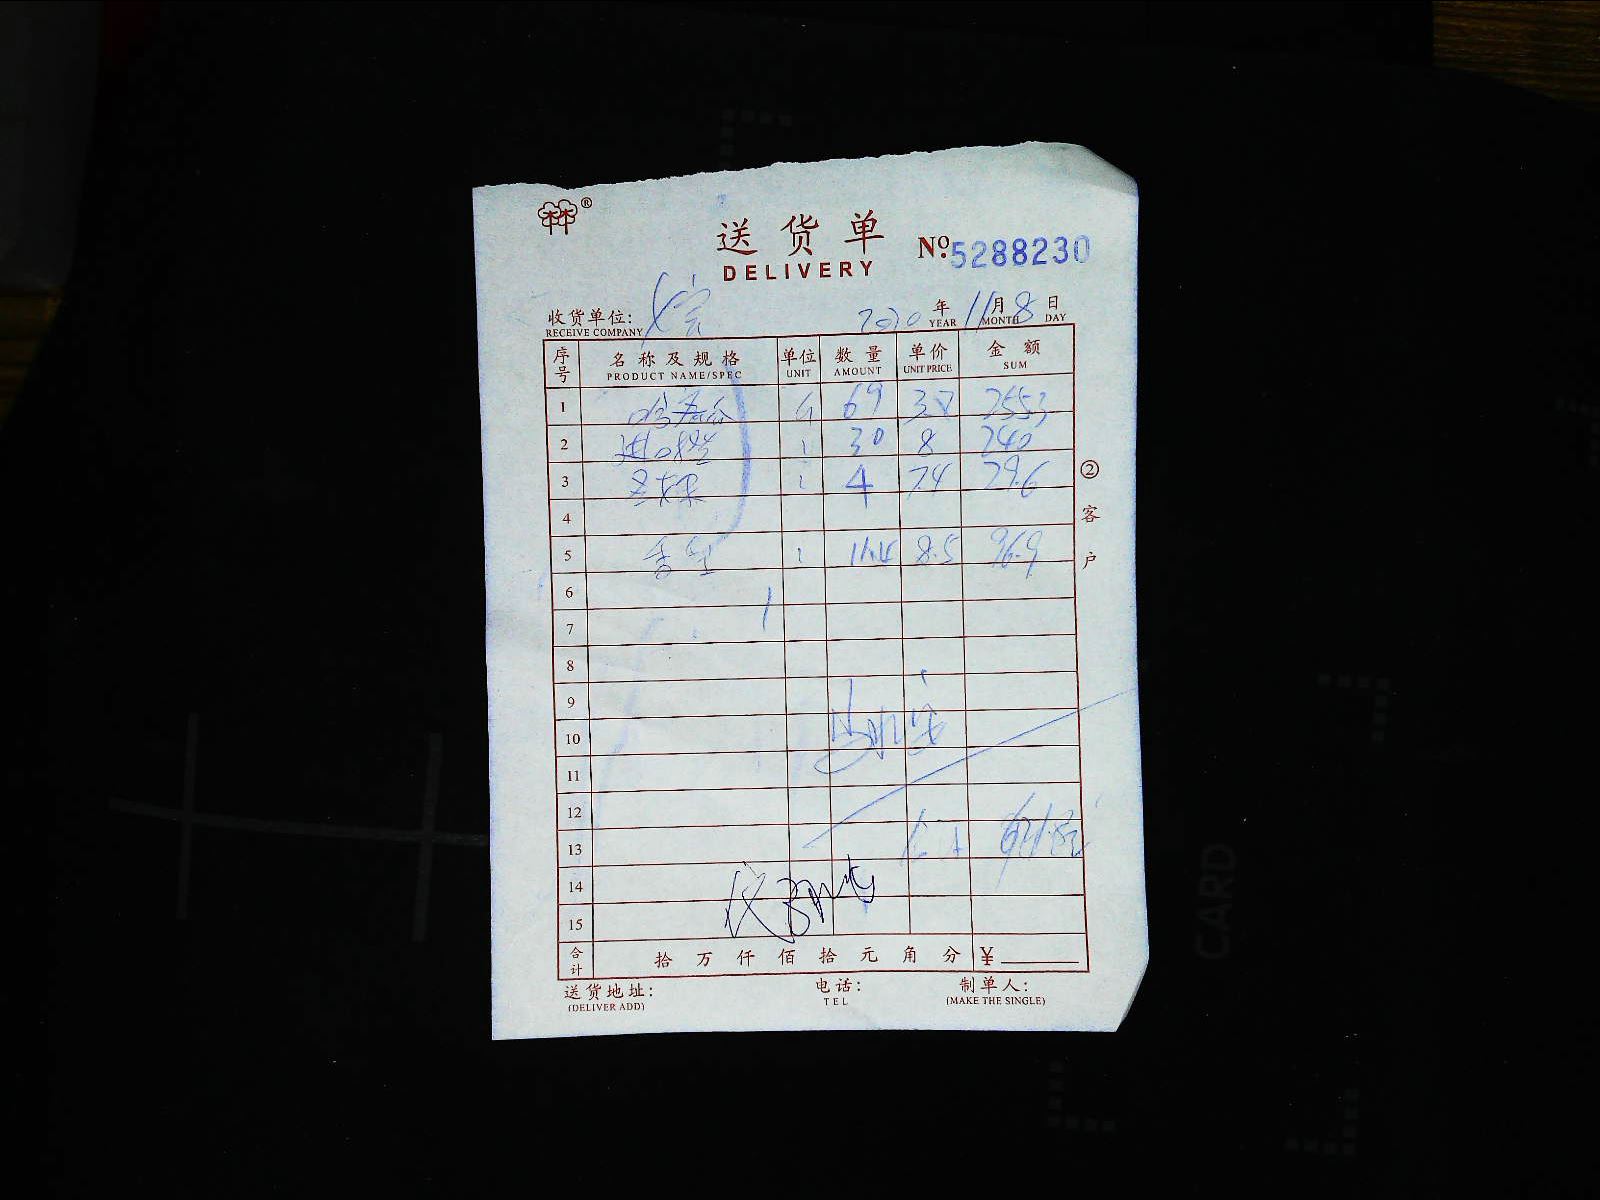 林®
送货单
DELIVERY
No.5288230
收货单位:
RECEIVE COMPANY
2020年 11月 8日
YEAR MONTH DAY
序号 名称及规格 单位 数量 单价 金额
PRODUCT NAME/SPEC UNIT AMOUNT UNIT PRICE SUM
1 哈密瓜 69 3.7 255.3
2 进口橙 30 8 240
3 4 7.4 29.6
4
5 香梨 11.4 8.5 96.9
6
7
8
9
10
11
12
13 合计 621.8元
14
15
合计 拾 万 仟 佰 拾 元 角 分 ¥
送货地址: 电话: 制单人:
(DELIVER ADD) TEL (MAKE THE SINGLE)
②客户
CARD